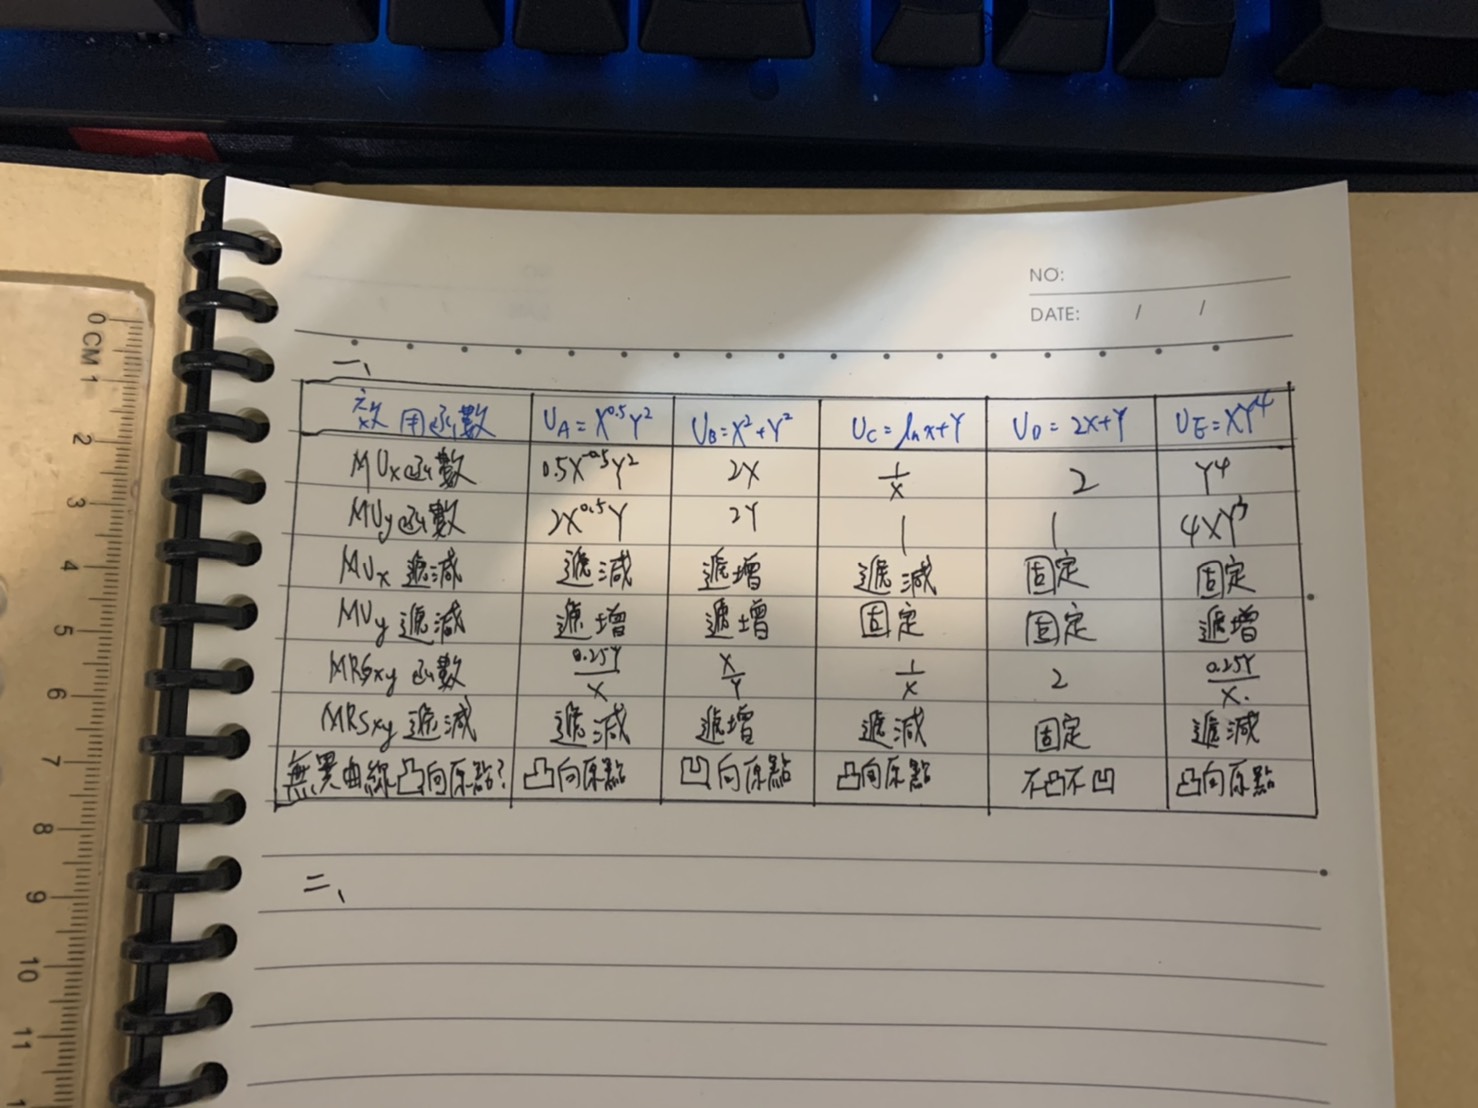 NO:
DATE: / /
一、
效用函數 U_A = X^0.5 Y^2 U_B = X^2 + Y^2 U_C = ln x + Y U_D = 2X + Y U_E = XY^4
MUx函數 0.5X^-0.5 Y^2 2X 1/X 2 Y^4
MUy函數 2X^0.5 Y 2Y 1 1 4XY^3
MUx 遞減 遞減 遞增 遞減 固定 固定
MUy 遞減 遞增 遞增 固定 固定 遞增
MRSxy 函數 0.25Y/X X/Y 1/X 2 0.25Y/X.
MRSxy 遞減 遞減 遞增 遞減 固定 遞減
無異曲線凸向原點? 凸向原點 凹向原點 凸向原點 不凸不凹 凸向原點
二、
0
CM 1
2
3
4
5
6
7
8
9
10
11